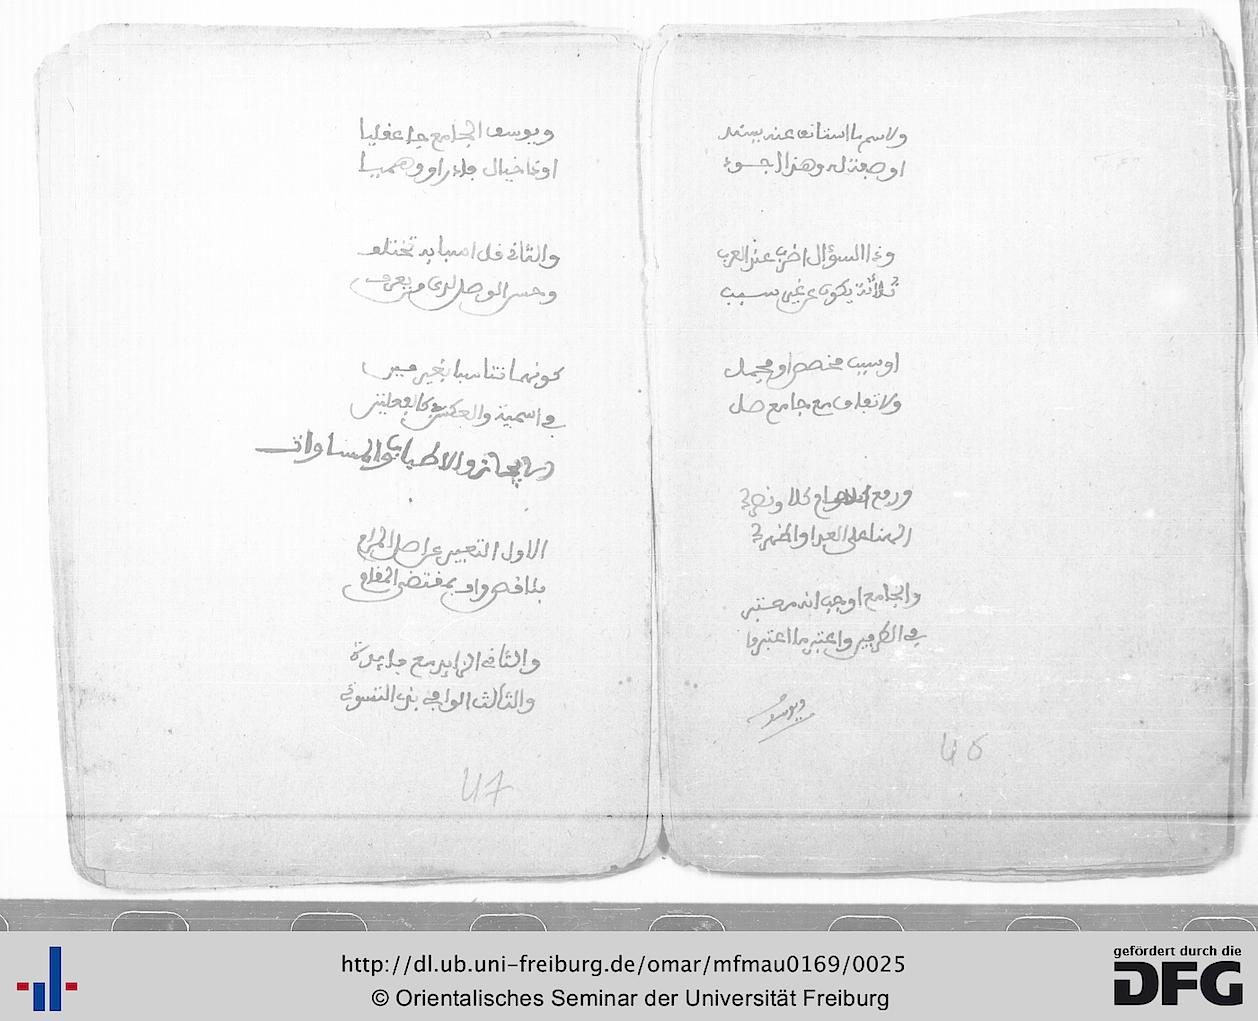 ولاسم ما استانف عنه يستند
او صفة له وهذا اجود
وذا السؤال اضرب عند العرب
ثلاثة يكون عن غير سبب
او سبب مخصص او مجمل
ولا تعادى مع جامع صل
ورفع او كلا ونصر
على العبد اواظهر
والجامع اوجب انه معتبر
في الطرفين واعتبر ما اعتبروا
ويوسف
46
ويوسف الجامع جاء عقليا
او ذا خيال جاء او وهميا
والثاني قل اسبابه تختلف
وحسن الوصل لدى من يعرف
كونهما تناسبا بغير مين
في اسمية والعكس كالفعلتين
والاطناب والمساواة
الاول التعبير عن اصل المراد
بناقص واف بمقتضى المقام
والثاني الزايد مع فايدة
والثالث الوافي بذي التسوية
47
http://dl.ub.uni-freiburg.de/omar/mfmau0169/0025
© Orientalisches Seminar der Universität Freiburg
gefördert durch die
DFG